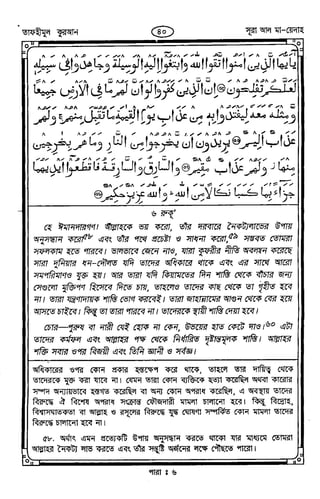 তাফহীমুল কুরআন
৪০
সূরা আল মা-য়েদাহ
يٰٓاَيُّهَا الَّذِيْنَ اٰمَنُوا اتَّقُوا اللّٰهَ وَابْتَغُوْٓا اِلَيْهِ الْوَسِيْلَةَ وَجَاهِدُوْا فِيْ سَبِيْلِهٖ
لَعَلَّكُمْ تُفْلِحُوْنَ ۞ اِنَّ الَّذِيْنَ كَفَرُوْا لَوْ اَنَّ لَهُمْ مَّا فِي الْاَرْضِ جَمِيْعًا
وَّمِثْلَهٗ مَعَهٗ لِيَفْتَدُوْا بِهٖ مِنْ عَذَابِ يَوْمِ الْقِيٰمَةِ مَا تُقُبِّلَ مِنْهُمْ ۚ وَلَهُمْ
عَذَابٌ اَلِيْمٌ ۞ يُرِيْدُوْنَ اَنْ يَّخْرُجُوْا مِنَ النَّارِ وَمَا هُمْ بِخٰرِجِيْنَ
مِنْهَا ۡ وَلَهُمْ عَذَابٌ مُّقِيْمٌ ۞ وَالسَّارِقُ وَالسَّارِقَةُ فَاقْطَعُوْٓا اَيْدِيَهُمَا
جَزَآءًۢ بِمَا كَسَبَا نَكَالًا مِّنَ اللّٰهِ ۗ وَاللّٰهُ عَزِيْزٌ حَكِيْمٌ ۞
৬ রুকূ'
হে ঈমানদারগণ! আল্লাহকে ভয় করো, তাঁর দরবারে নৈকট্যলাভের উপায়
অনুসন্ধান করো৫৮ এবং তাঁর পথে প্রচেষ্টা ও সাধনা করো,৫৯ সম্ভবত তোমরা
সফলকাম হতে পারবে। ভালভাবে জেনে নাও, যারা কুফরীর নীতি অবলম্বন করেছে
সারা দুনিয়ার ধন-দৌলত যদি তাদের অধিকারে থাকে এবং এর সাথে আরো
সমপরিমাণও যুক্ত হয়। আর তারা যদি কিয়ামতের দিন শাস্তি থেকে বাঁচার জন্য
সেগুলো মুক্তিপণ হিসেবে দিতে চায়, তাহলেও তাদের কাছ থেকে তা গৃহীত হবে
না। তারা যন্ত্রণাদায়ক শাস্তি ভোগ করবেই। তারা জাহান্নামের আগুন থেকে বের হয়ে
আসতে চাইবে। কিন্তু তা তারা পারবে না। তাদেরকে স্থায়ী শাস্তি দেয়া হবে।
চোর—পুরুষ বা নারী যেই হোক না কেন, উভয়ের হাত কেটে দাও।৬০ এটা
তাদের কর্মফল এবং আল্লাহর পক্ষ থেকে নির্ধারিত দৃষ্টান্তমূলক শাস্তি। আল্লাহর
শক্তি সবার ওপর বিজয়ী এবং তিনি জ্ঞানী ও সর্বজ্ঞ।
অধিকারের ওপর কোন প্রকার হস্তক্ষেপ করে থাকে, তাহলে তার দায়িত্ব থেকে
তাদেরকে মুক্ত করা যাবে না। যেমন তারা কোন ব্যক্তিকে হত্যা করেছিল অথবা কারোর
সম্পদ অন্যায়ভাবে হস্তগত করেছিল বা অন্য কোন অপরাধ করেছিল, এ অবস্থায় তাদের
বিরুদ্ধে ঐ বিশেষ অপরাধ সংক্রান্ত ফৌজদারী মামলা চালানো হবে। কিন্তু বিদ্রোহ,
বিশ্বাসঘাতকতা বা আল্লাহ ও রসূলের বিরুদ্ধে যুদ্ধ ঘোষণা সম্পর্কিত কোন মামলা তাদের
বিরুদ্ধে চালানো হবে না।
৫৮. অর্থাৎ এমন প্রত্যেকটি উপায় অনুসন্ধান করতে থাকো যার মাধ্যমে তোমরা
আল্লাহর নৈকট্য লাভ করতে এবং তাঁর সন্তুষ্টি অর্জনের লক্ষে পৌঁছতে পারো।
পারা : ৬